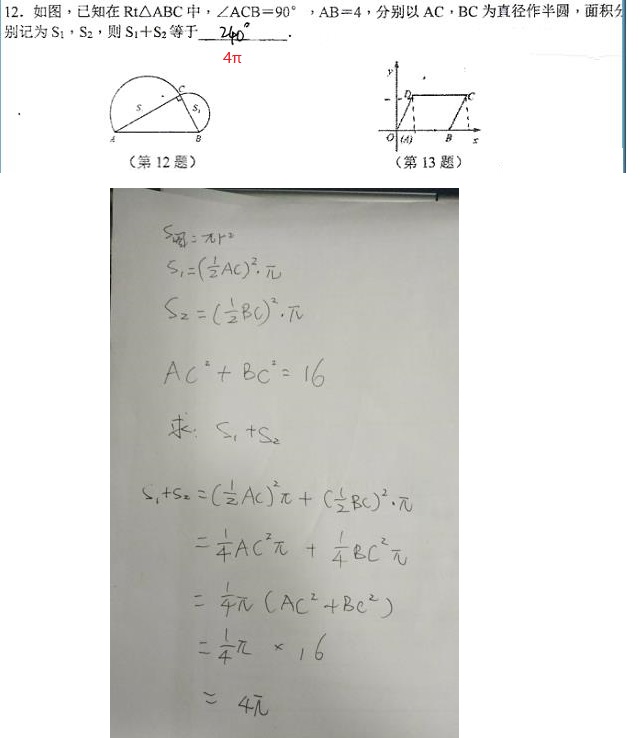 12．如图，已知在 Rt△ABC 中，∠ACB＝90°，AB＝4，分别以 AC，BC 为直径作半圆，面积分
别记为 S₁，S₂，则 S₁＋S₂ 等于 240° ．
4π
S C S₁
A B
（第 12 题）
y
D C
O (A) B x
（第 13 题）
S圆=πr²
S₁=(½AC)²·π
S₂=(½BC)²·π
AC²+BC²=16
求: S₁+S₂
S₁+S₂=(½AC)²π+(½BC)²·π
=¼AC²π+¼BC²π
=¼π(AC²+BC²)
=¼π×16
=4π